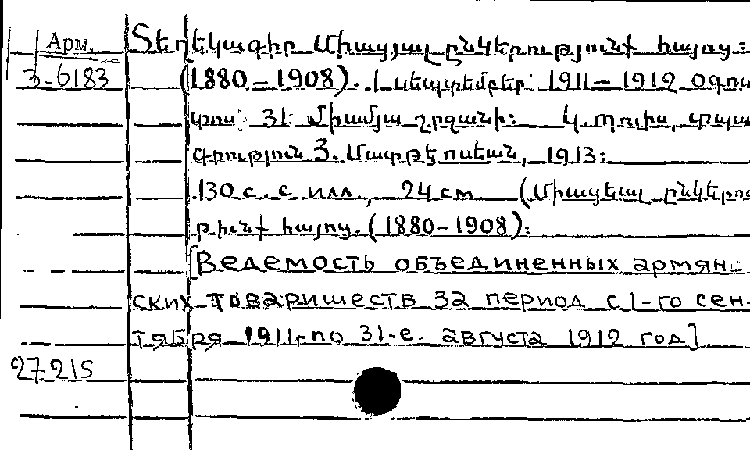 Арм. Տեղեկագիր Միացյալ ընկերությունք հայոց:
3-6183 (1880-1908). 1 սեպտեմբեր 1911-1912 օգոս
տոս 31 միամյա շրջանի: Կ. պոլիս, տպա
գրություն Յ. Մատթէոսեան, 1913:
130 с. с илл., 24 см (Միացեալ ընկերու
թիւնք հայոց. (1880-1908):
[Ведомость объединенных армян-
ских товариществ за период с 1-го сен-
тября 1911 г. по 31-е августа 1912 год]
27215